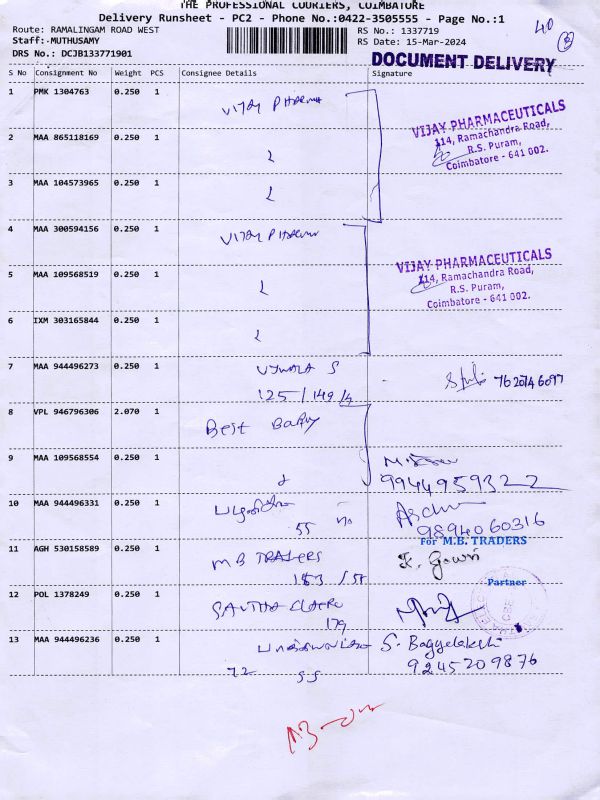 THE PROFESSIONAL COURIERS, COIMBATORE
Delivery Runsheet - PC2 - Phone No.:0422-3505555 - Page No.:1
Route: RAMALINGAM ROAD WEST
RS No.: 1337719
Staff:-MUTHUSAMY
RS Date: 15-Mar-2024
DRS No.: DCJB133771901
DOCUMENT DELIVERY
S No Consignment No Weight PCS Consignee Details Signature
1 PMK 1304763 0.250 1 VIJAY PHARMA
VIJAY PHARMACEUTICALS
114, Ramachandra Road,
R.S. Puram,
Coimbatore - 641 002.
2 MAA 865118169 0.250 1
3 MAA 104573965 0.250 1
4 MAA 300594156 0.250 1 VIJAY PHARMA
VIJAY PHARMACEUTICALS
114, Ramachandra Road,
R.S. Puram,
Coimbatore - 641 002.
5 MAA 109568519 0.250 1
6 IXM 303165844 0.250 1
7 MAA 944496273 0.250 1 S
125/149/4
8 VPL 946796306 2.070 1 Best Baby
9 MAA 109568554 0.250 1
9944959322
10 MAA 944496331 0.250 1
55
9894060316
11 AGH 530158589 0.250 1 M B TRADERS
For M.B. TRADERS
Partner
12 POL 1378249 0.250 1
179
13 MAA 944496236 0.250 1
S. Baggelakshi
72
9245209876